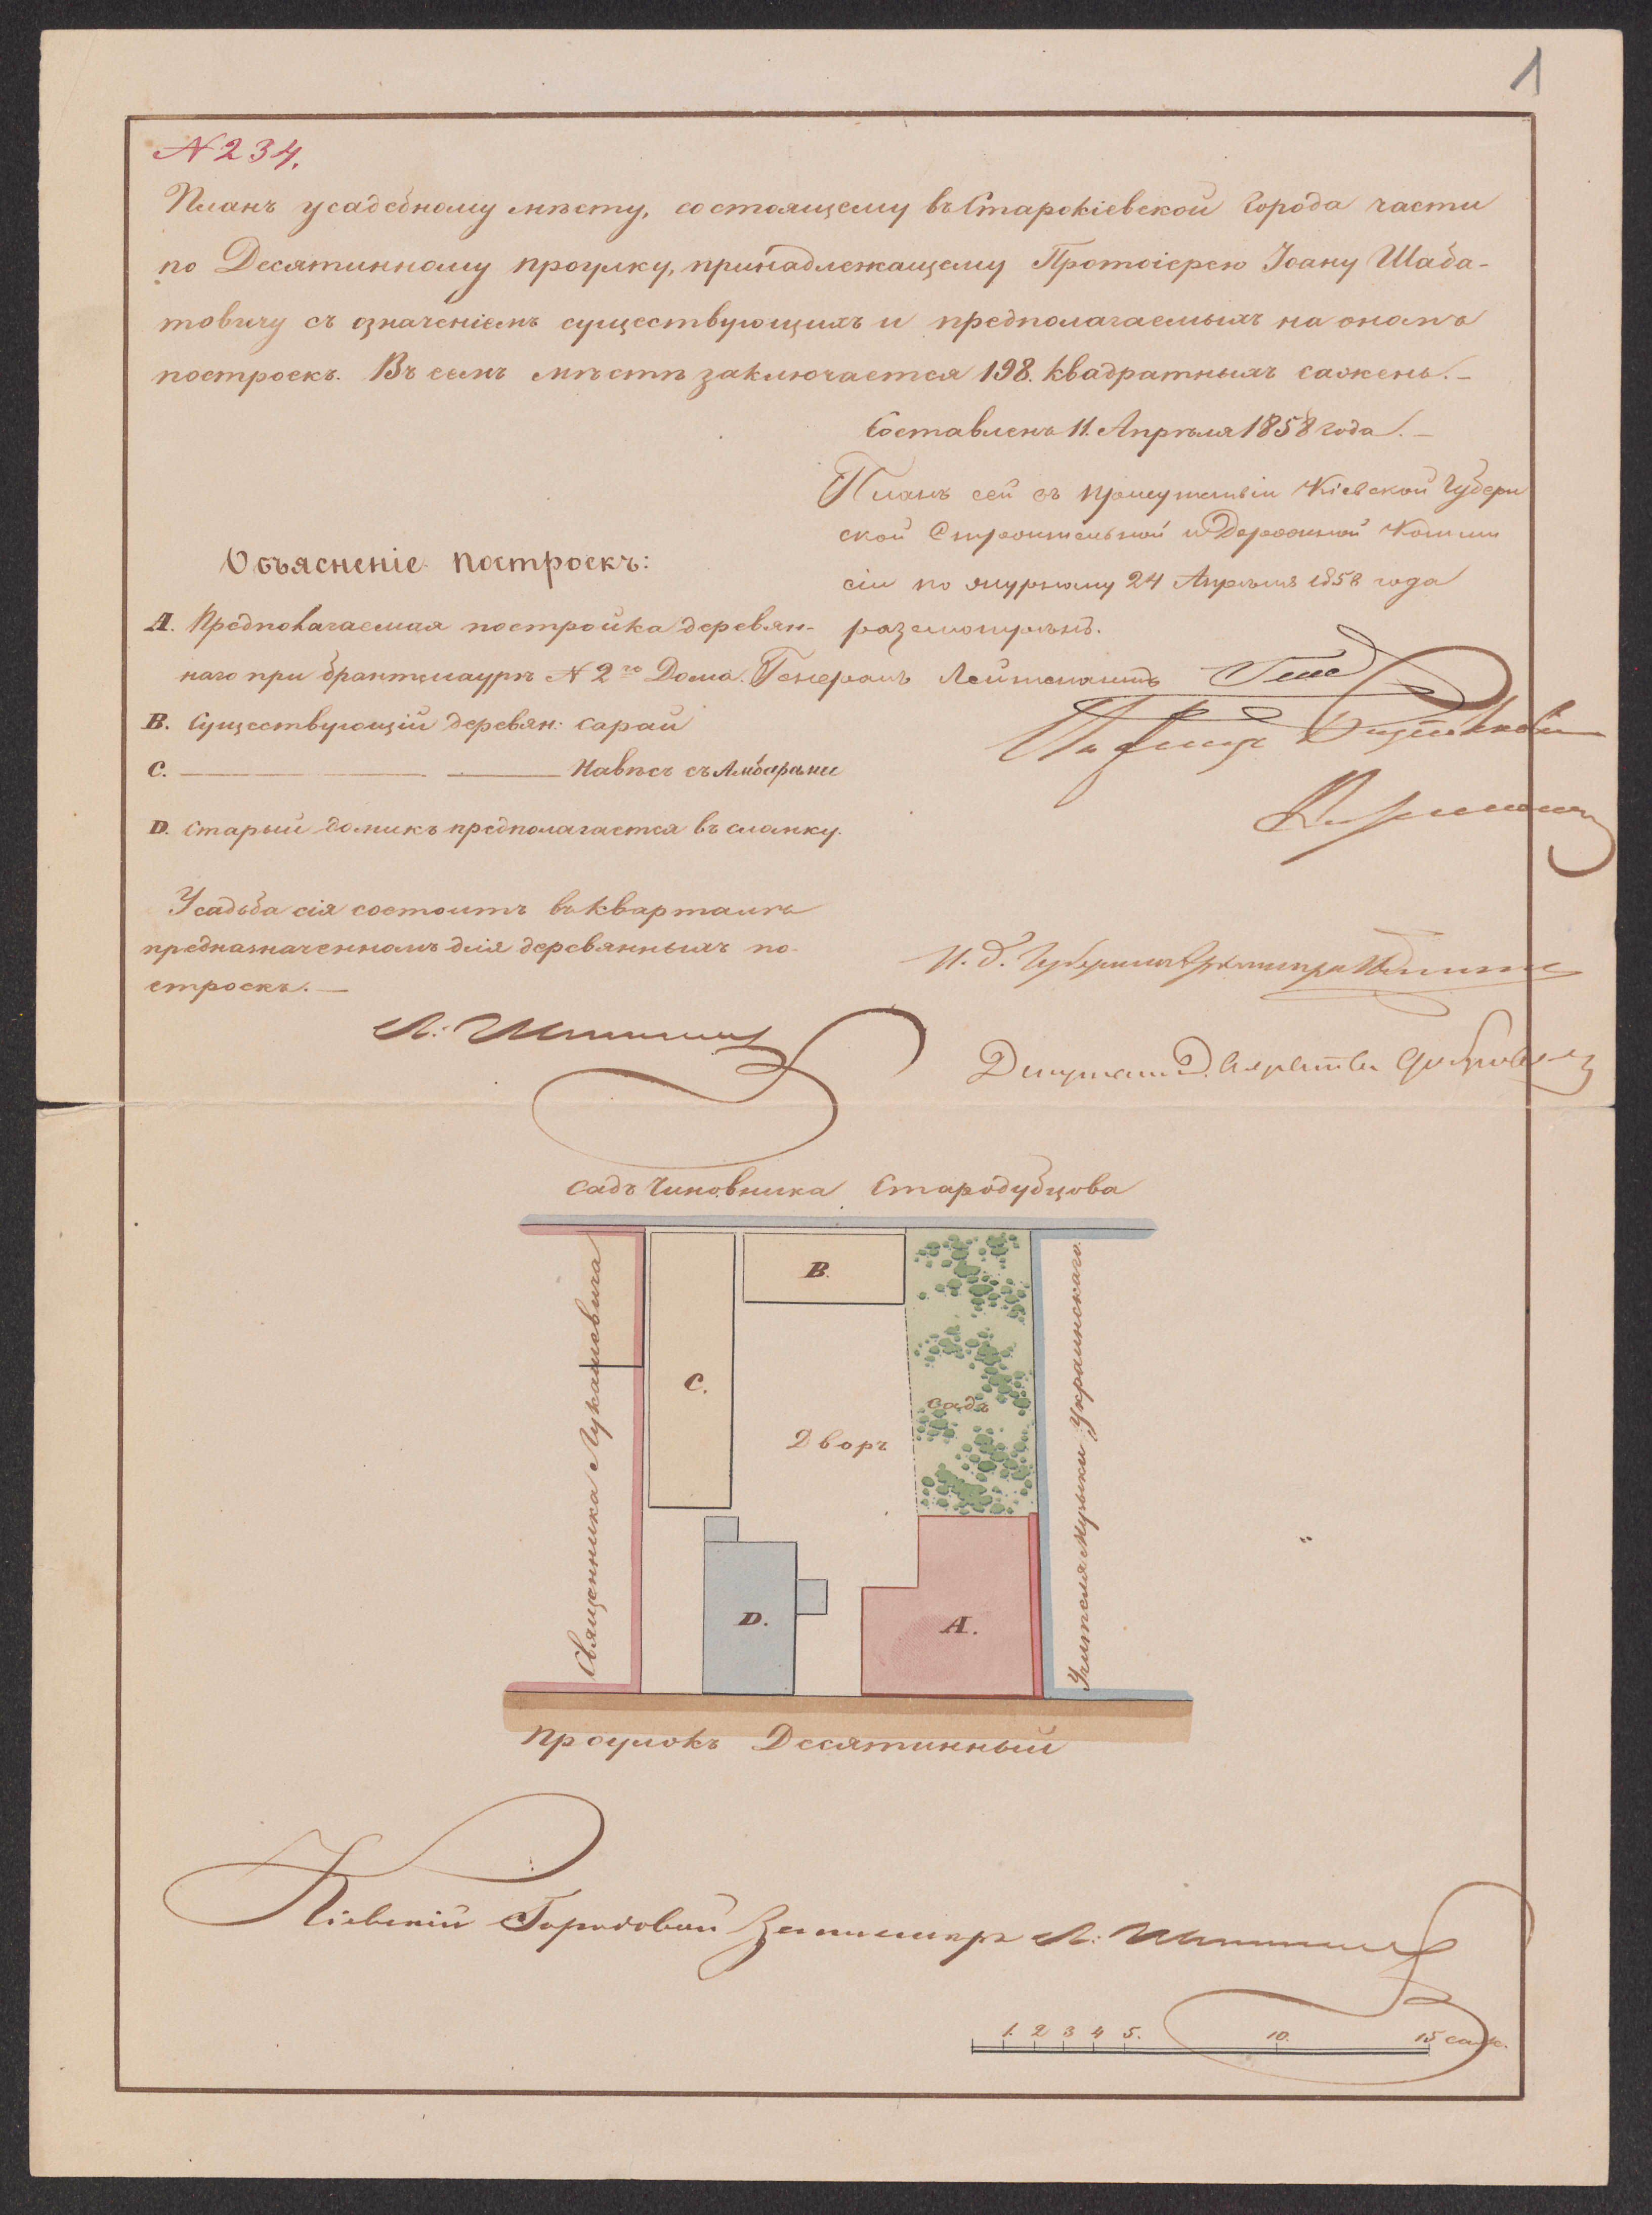 1
N 234.
Планъ усадебному мѣсту, состоящему въ Старокіевской города части
по Десятинному проулку, принадлежащему Протоіерею Іоану Шаба-
товичу съ означеніемъ существующихъ и предполагаемыхъ на ономъ
построекъ. Въ семъ мѣстѣ заключается 198. квадратныхъ сажень.—
Составленъ 11. Апрѣля 1858 года.—
Планъ сей въ присутствіи Кіевской Губерн
ской Строительной и Дорожной Комми
сіи по журналу 24 Апрѣля 1858 года
разсмотрѣнъ.
Генералъ Лейтенантъ
Объясненіе построекъ:
A. Предполагаемая постройка деревян-
наго при брантмаурѣ N 2го Дома.
B. Существующій деревян: сарай
C. ——— ——— Навѣсъ съ Амбарами
D. Старый домикъ предполагается въ сломку.
Усадьба сія состоитъ въ кварталѣ
предназначенномъ для деревянныхъ по-
строекъ.—
И. д. Губернскаго
Депутатъ
садъ Чиновника Стародубцова
Священника Лукашевича
B.
C.
садъ
Дворъ
D.
A.
Учителя Музыки Украинскаго.
Проулокъ Десятинный
Кіевскій Городовой Землемѣръ
1. 2 3 4 5. 10. 15 саж.